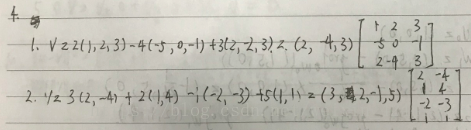 4.
1. V = 2(1, 2, 3) - 4(-5, 0, -1) + 3(2, -2, 3) = (2, -4, 3) [1 2 3
-5 0 -1
2 -4 3]
2. V = 3(2, -4) + 2(1, 4) - (-2, -3) + 5(1, 1) = (3, 2, -1, 5) [2 -4
1 4
-2 -3
1 1]